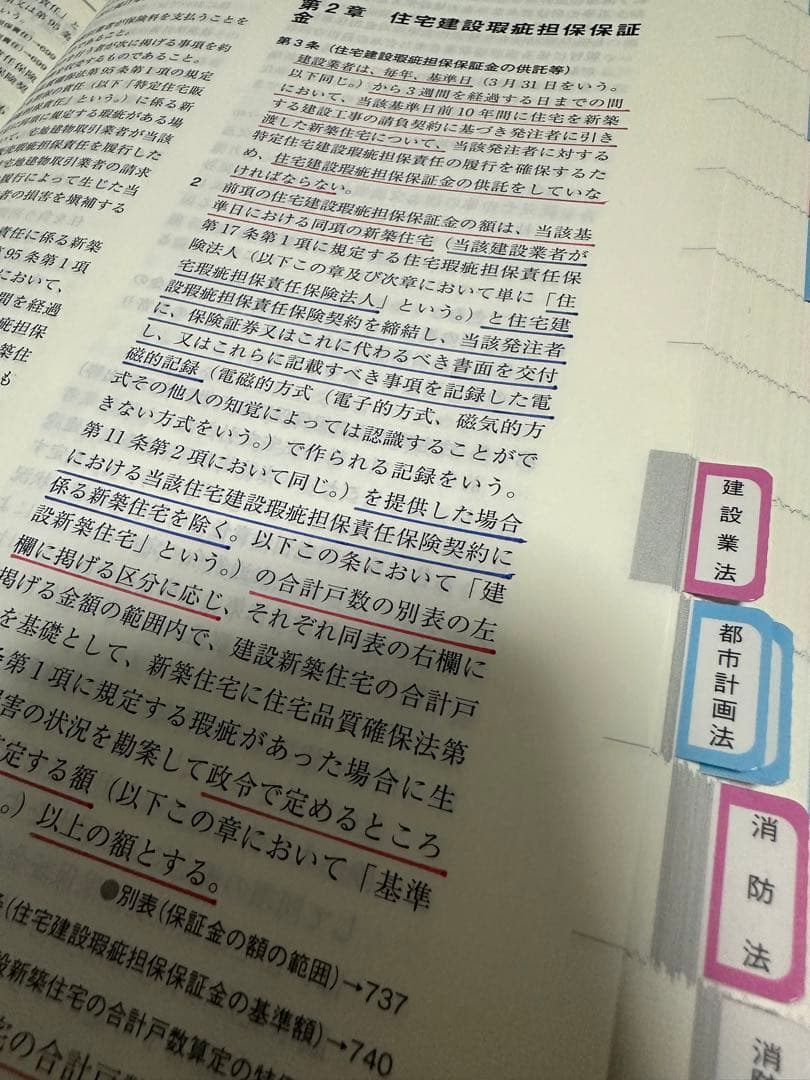 者が保険料を支払うことを
であること。
う者が次に掲げる事項を約
受するものであること。
確保法第95条第1項の規定
の責任（以下「特定住宅販
保責任」という。）に係る新
に規定する瑕疵がある場
て、宅地建物取引業者が当該
責任を履行した
宅地建物取引業者の請求
履行によって生じた当
者の損害を塡補する
責任に係る新築
95条第1項
において、
間を経過
疵担保
築住
も
第2章　住宅建設瑕疵担保保証
金
第3条（住宅建設瑕疵担保保証金の供託等）
建設業者は、毎年、基準日（3月31日をいう。
以下同じ。）から3週間を経過する日までの間
において、当該基準日前10年間に住宅を新築
する建設工事の請負契約に基づき発注者に引き
渡した新築住宅について、当該発注者に対する
特定住宅建設瑕疵担保責任の履行を確保するた
め、住宅建設瑕疵担保保証金の供託をしていな
ければならない。
2
前項の住宅建設瑕疵担保保証金の額は、当該基
準日における同項の新築住宅（当該建設業者が
第17条第1項に規定する住宅瑕疵担保責任保
険法人（以下この章及び次章において単に「住
宅瑕疵担保責任保険法人」という。）と住宅建
設瑕疵担保責任保険契約を締結し、当該発注者
に、保険証券又はこれに代わるべき書面を交付
し、又はこれらに記載すべき事項を記録した電
磁的記録（電磁的方式（電子的方式、磁気的方
式その他人の知覚によっては認識することがで
きない方式をいう。）で作られる記録をいう。
第11条第2項において同じ。）を提供した場合
における当該住宅建設瑕疵担保責任保険契約に
係る新築住宅を除く。以下この条において「建
設新築住宅」という。）の合計戸数の別表の左
欄に掲げる区分に応じ、それぞれ同表の右欄に
掲げる金額の範囲内で、建設新築住宅の合計戸
を基礎として、新築住宅に住宅品質確保法第
第1項に規定する瑕疵があった場合に生
害の状況を勘案して政令で定めるところ
定する額（以下この章において「基準
。）以上の額とする。
●別表（保証金の額の範囲）→737
（住宅建設瑕疵担保保証金の基準額）→740
設新築住宅の合計戸数算定の特
の合計戸数
建設業法
都市計画法
消防法
消